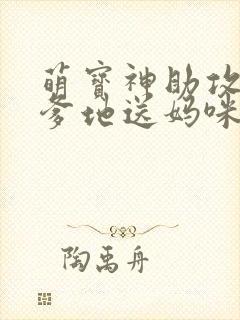 萌宝神助攻
爹地送妈咪
陶禹舟